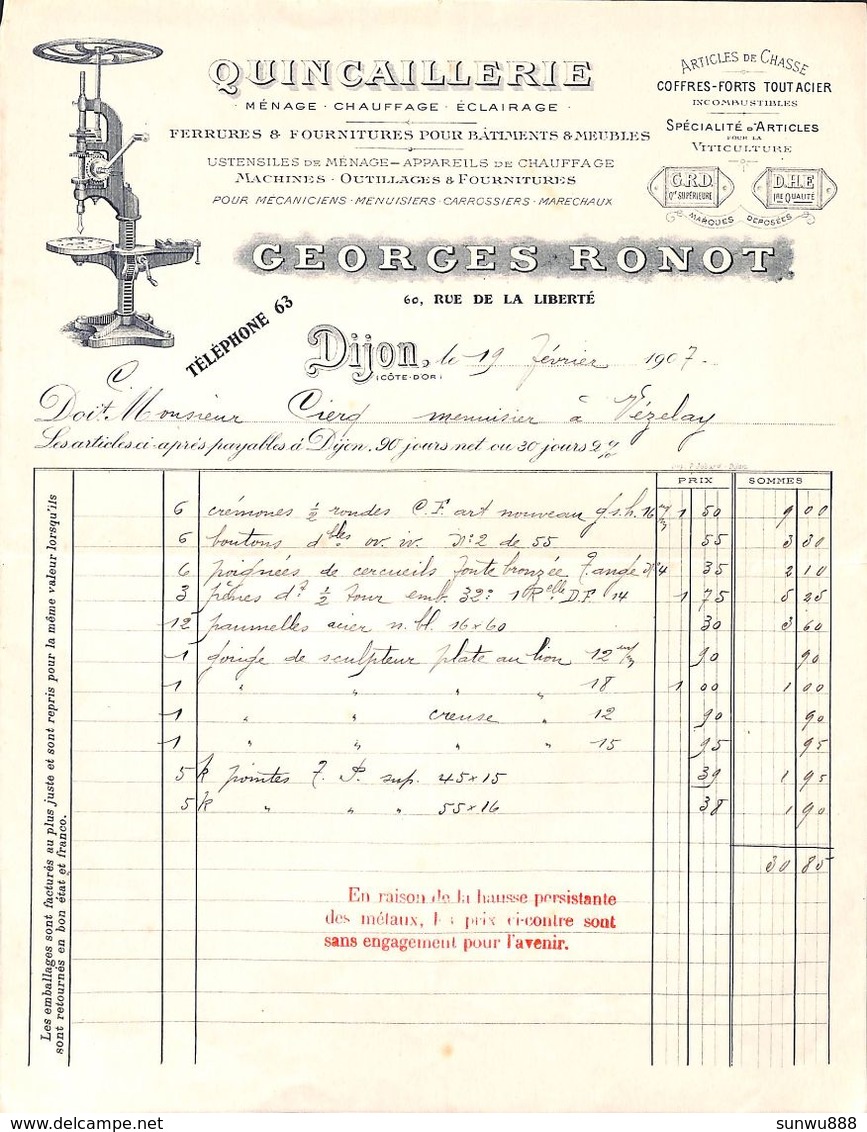 QUINCAILLERIE
MÉNAGE · CHAUFFAGE · ÉCLAIRAGE ·
FERRURES & FOURNITURES POUR BÂTIMENTS & MEUBLES
USTENSILES DE MÉNAGE - APPAREILS DE CHAUFFAGE
MACHINES · OUTILLAGES & FOURNITURES
POUR MÉCANICIENS · MENUISIERS · CARROSSIERS · MARECHAUX
ARTICLES DE CHASSE
COFFRES-FORTS TOUT ACIER
INCOMBUSTIBLES
SPÉCIALITÉ D'ARTICLES
POUR LA
VITICULTURE
G.R.D.
Qté SUPÉRIEURE
D.H.E
1RE QUALITÉ
MARQUES DÉPOSÉES
GEORGES RONOT
60, RUE DE LA LIBERTÉ
TÉLÉPHONE 63
Dijon, le 19 février 1907.
(CÔTE-D'OR)
Doit Monsieur Cierq menuisier à Vézelay
Les articles ci-après payables à Dijon, 90 jours net ou 30 jours 2%
PRIX SOMMES
6 crémones ½ rondes C.F. art nouveau g.s.h. 16 m/m 1 50 9 00
6 boutons dbles ov. iv. N:2 de 55 55 3 30
6 poignées de cercueils fonte bronzée T. ange N°4 35 2 10
3 pènes dt ½ tour emb. 32: 1 Relle D.F. 14 1 75 5 25
12 paumelles acier n. bl. 16x60 30 3 60
1 gouge de sculpteur plate au lion 12 m/m 90 90
1 " " " 18 1 00 1 00
1 " " creuse " 12 90 90
1 " " " " 15 95 95
5 k pointes T. P. sup. 45x15 39 1 95
5 k " " " 55x16 38 1 90
30 85
En raison de la hausse persistante
des métaux, les prix ci-contre sont
sans engagement pour l'avenir.
Les emballages sont facturés au plus juste et sont repris pour la même valeur lorsqu'ils
sont retournés en bon état et franco.
sunwu888